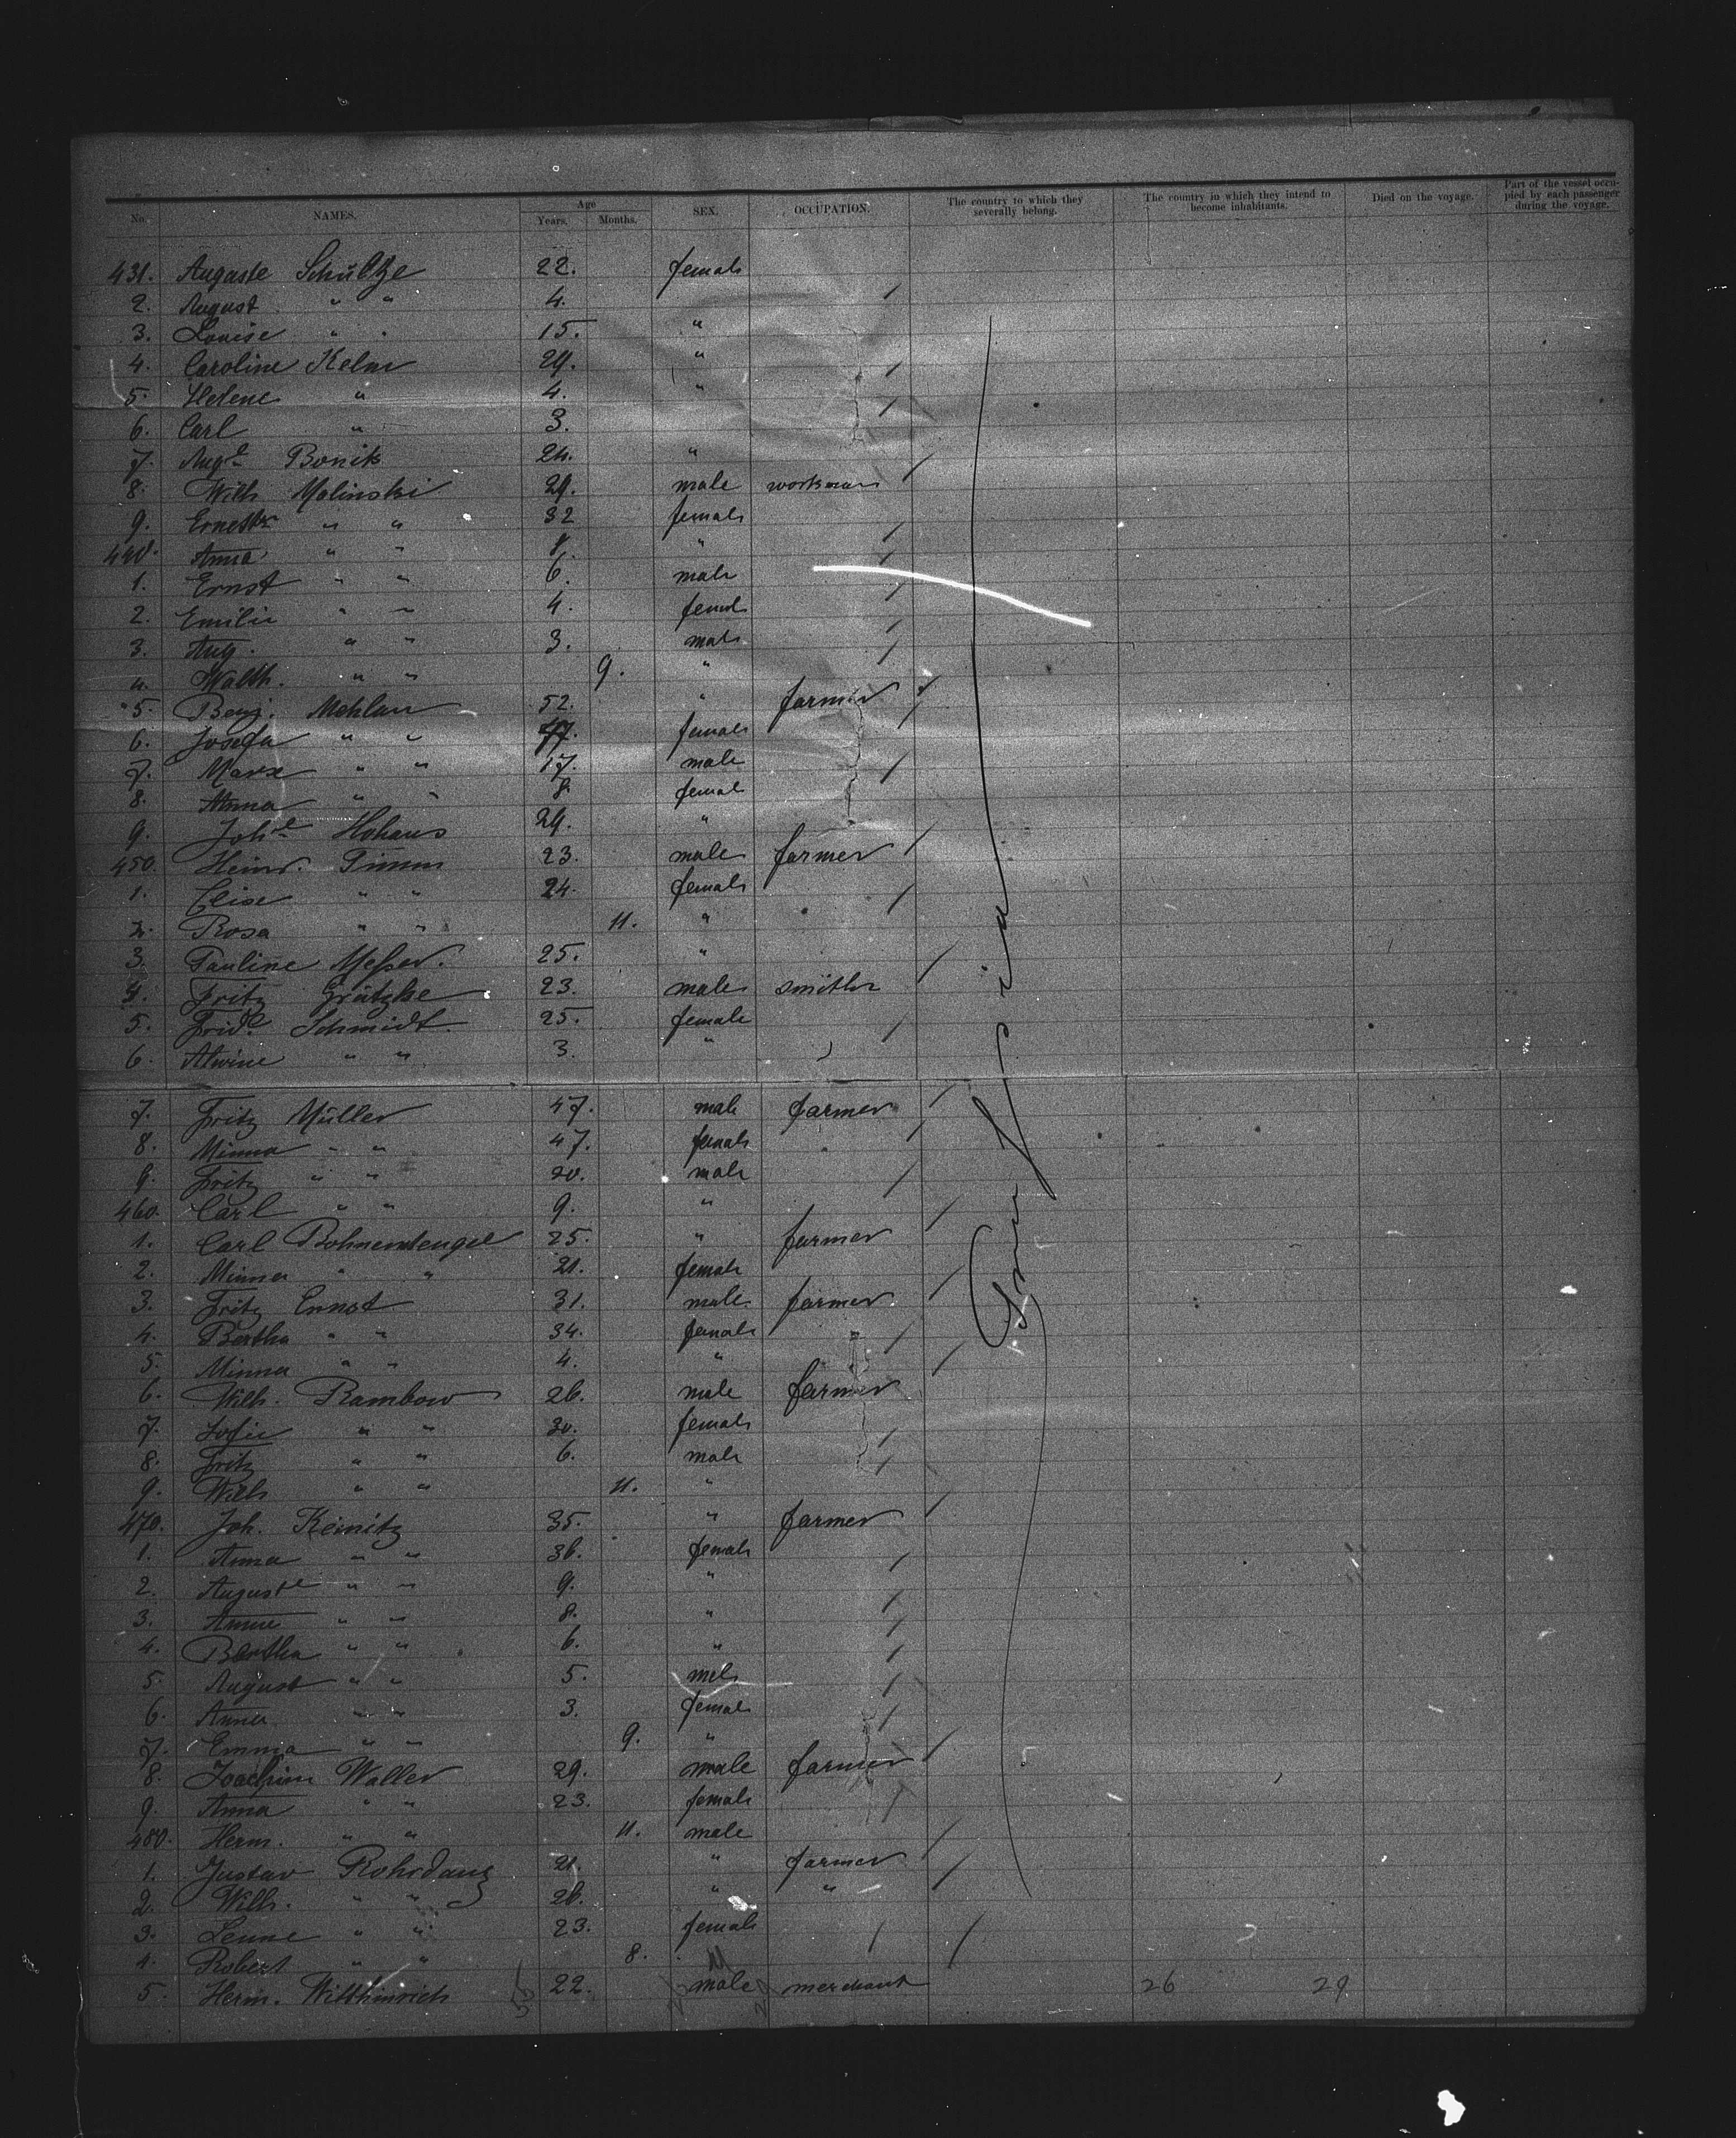 No. NAMES. Age Years. Months. SEX. OCCUPATION. The country to which they severally belong. The country in which they intend to become inhabitants. Died on the voyage. Part of the vessel occupied by each passenger during the voyage.
431. Auguste Schültze 22. female
2. August " " 4.
3. Louise " " 15. "
4. Caroline Kelm 29. "
5. Helene " 4. "
6. Carl " 3.
7. Augte Bonik 24. "
8. Wilh Malinski 29. male workman
9. Ernestine " " 32 female
440. Anna " " 8. "
1. Ernst " " 6. male
2. Emilie " " 4. female
3. Aug. " " 3. male
4. Walth. " " 9. "
5. Benj. Mehlan 52. " farmer
6. Josefa " " 47. female
7. Marx " " 17. male
8. Anna " " 8. female
9. Johe Hohaus 29. "
450. Heinr. Timm 23. male farmer
1. Elise " " 24. female
2. Rosa " " 11. "
3. Pauline Messer. 25. "
4. Fritz Grützke 23. male smith
5. Fride Schmidt 25. female
6. Alwine " " 3. "
7. Fritz Müller 47. male farmer
8. Minna " " 47. female
9. Fritz " " 20. male
460. Carl " " 9. "
1. Carl Bohnenstengel 25. " farmer
2. Minna " " 21. female
3. Fritz Ennot 31. male farmer
4. Bertha " " 34. female
5. Minna " " 4. "
6. Wilh. Rambow 26. male farmer
7. Sofie " " 30. female
8. Fritz " " 6. male
9. Wilh " " 11. "
470. Joh. Keinitz 35. " farmer
1. Anna " " 36. female
2. Auguste " " 9. "
3. Anna " " 8. "
4. Bertha " " 6. "
5. August " " 5. male
6. Anna " " 3. female
7. Emma " " 9. "
8. Joachim Waller 29. male farmer
9. Anna " " 23. female
480. Herm. " " 11. male
1. Gustav Rohrdanz 21. " farmer
2. Wilh. " " 26. " "
3. Lenne " " 23. female
4. Robert " " 8.
5. Herm. Witthinrich 22. male merchant 26 29